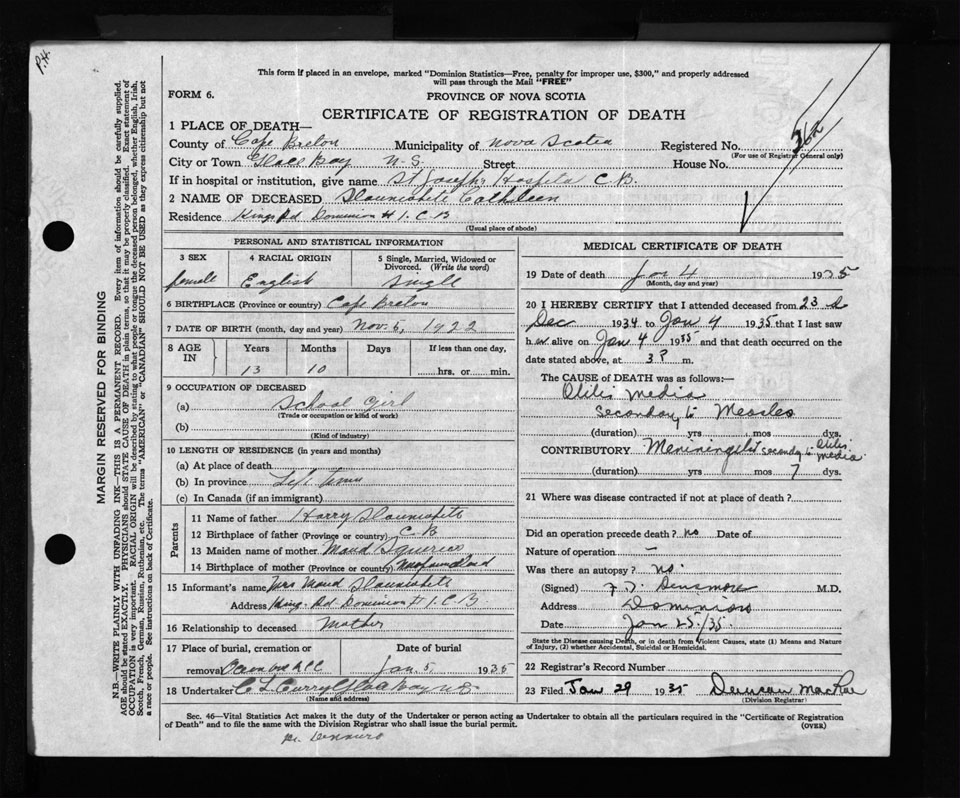 P.H.
This form if placed in an envelope, marked "Dominion Statistics—Free, penalty for improper use, $300," and properly addressed
will pass through the Mail "FREE"
FORM 6.
PROVINCE OF NOVA SCOTIA
CERTIFICATE OF REGISTRATION OF DEATH
1 PLACE OF DEATH—
County of Cape Breton Municipality of Nova Scotia Registered No. 362
(For use of Registrar General only)
City or Town Glace Bay N.S. Street House No.
If in hospital or institution, give name St Josephs Hospital C.B.
2 NAME OF DECEASED Slauniwhite Cathileen
Residence Kings Rd Dominion # 1. C B
(Usual place of abode)
PERSONAL AND STATISTICAL INFORMATION
3 SEX
female
4 RACIAL ORIGIN
English
5 Single, Married, Widowed or
Divorced. (Write the word)
Single
6 BIRTHPLACE (Province or country) Cape Breton
7 DATE OF BIRTH (month, day and year) Nov. 6, 1922
8 AGE IN
Years Months Days If less than one day,
13 10 hrs. or min.
9 OCCUPATION OF DECEASED
(a) School Girl
(Trade or occupation or kind of work)
(b)
(Kind of industry)
10 LENGTH OF RESIDENCE (in years and months)
(a) At place of death
(b) In province Life time
(c) In Canada (if an immigrant)
Parents
11 Name of father Harry Slauniwhite
12 Birthplace of father (Province or country) C B
13 Maiden name of mother Maud
14 Birthplace of mother (Province or country) Newfoundland
15 Informant's name Mrs Maud Slauniwhite
Address Kings Rd Dominion # 1. C B
16 Relationship to deceased Mother
17 Place of burial, cremation or
removal
Date of burial
Jan. 5. 1935
18 Undertaker C L Curry Glace Bay N S
(Name and address)
MEDICAL CERTIFICATE OF DEATH
19 Date of death Jan 4 1935
(Month, day and year)
20 I HEREBY CERTIFY that I attended deceased from 23 d
Dec 1934 to Jan 4 1935 that I last saw
h er alive on Jan 4 1935 and that death occurred on the
date stated above, at 3 P m.
The CAUSE of DEATH was as follows:—
Otitis Media
secondary to Measles
(duration) yrs mos dys.
CONTRIBUTORY Meniningitis secondary to Otitis media
(duration) yrs mos 7 dys.
21 Where was disease contracted if not at place of death?
Did an operation precede death? no Date of
Nature of operation —
Was there an autopsy? no.
(Signed) Densmore M.D.
Address Dominion
Date Jan 25/35.
State the Disease causing Death, or in death from Violent Causes, state (1) Means and Nature
of Injury, (2) whether Accidental, Suicidal or Homicidal.
22 Registrar's Record Number
23 Filed Jan 29 1935 Duncan MacRae
(Division Registrar)
Sec. 46—Vital Statistics Act makes it the duty of the Undertaker or person acting as Undertaker to obtain all the particulars required in the "Certificate of Registration
of Death" and to file the same with the Division Registrar who shall issue the burial permit.
(OVER)
MARGIN RESERVED FOR BINDING
N.B.—WRITE PLAINLY WITH UNFADING INK—THIS IS A PERMANENT RECORD. Every item of information should be carefully supplied.
AGE should be stated EXACTLY. PHYSICIANS should STATE CAUSE OF DEATH in plain terms, so that it may be properly classified. Exact statement of
OCCUPATION is very important. RACIAL ORIGIN will be described by stating to what people or tongue the deceased person belonged, whether English, Irish,
Scotch, French, German, Russian, Ruthenian, etc. The terms "AMERICAN" or "CANADIAN" SHOULD NOT BE USED as they express citizenship but not
a race or people. See instructions on back of Certificate.